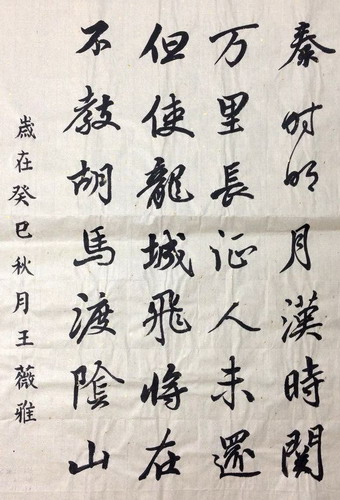 秦时明月漢時關
万里長征人未還
但使龍城飛将在
不教胡馬渡陰山
歲在癸巳秋月王薇雅